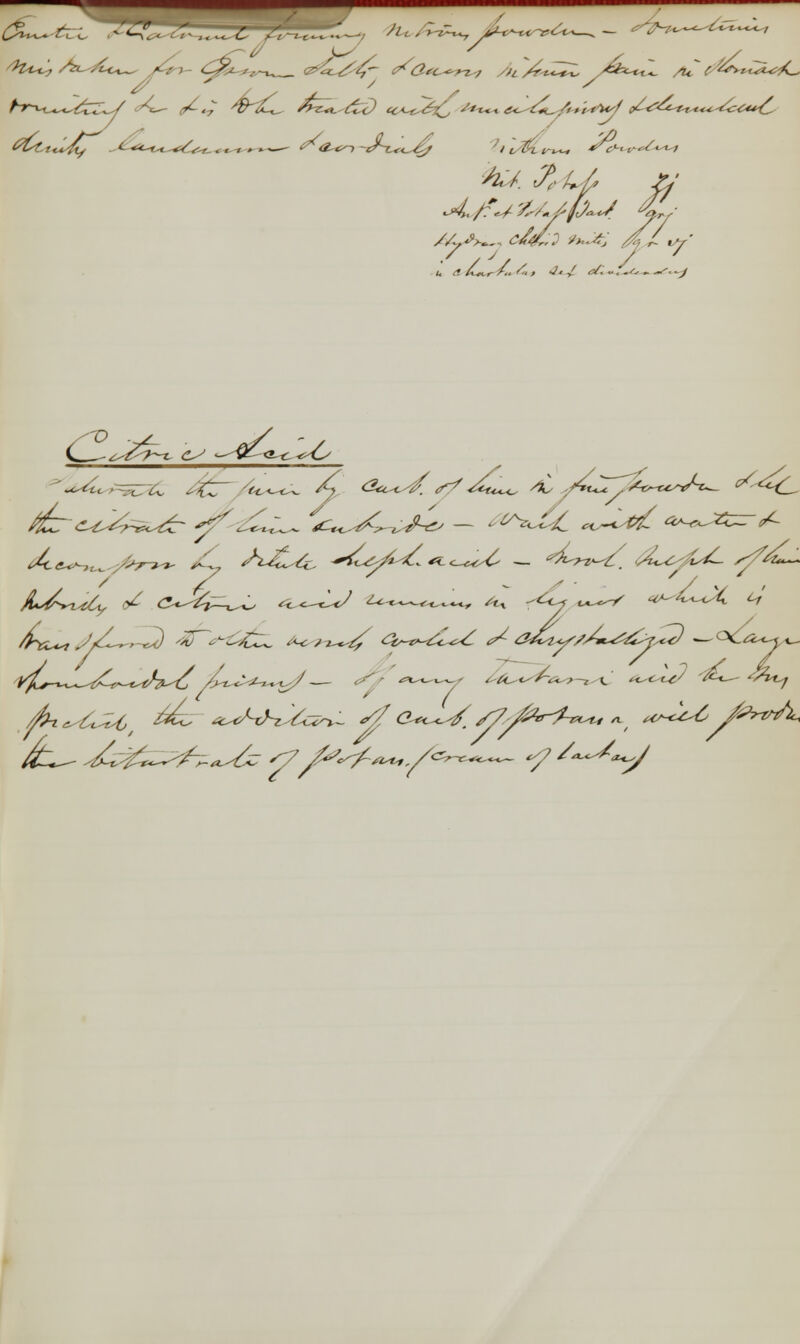 Emetic & Calomel forming Nitrous powder — Sometimes
mistaken for Epsom Salts, & causes intense pain in stomach
vomiting &c & is to be treated with mucilaginous & demulcent
drinks, laudanum & cordials
Nitrous Powders
Nit. Potass ʒj
Ant. et Potass Tart. grj
Hydrarg Chlorid mitis gr vj
in chartulas dividendus
Citric Acid
Saturate the juice by Carb. of lime in fine powder & let
the citrate of lime subside — Wash with water &
decompose by dilute sulph. acid — Insol. sulph of lime
subsides & Citric acid remains in liquor which is
transferred to other vessels cooled & chrystallized — Large
rhomboidal prisms — If any tartaric acid be
the addition of Carb. of potassa, will produ
the bitartrate of potass. (cream of tartar)